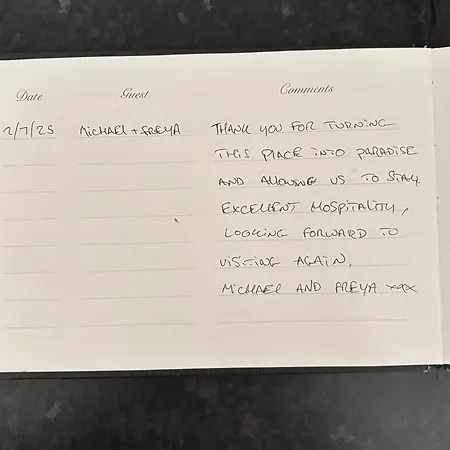 Date Guest Comments
2/7/25 MICHAEL + FREYA THANK YOU FOR TURNING
THIS PLACE INTO PARADISE
AND ALLOWING US TO STAY.
EXCELLENT HOSPITALITY,
LOOKING FORWARD TO
VISTING AGAIN,
MICHAEL AND FREYA xxx